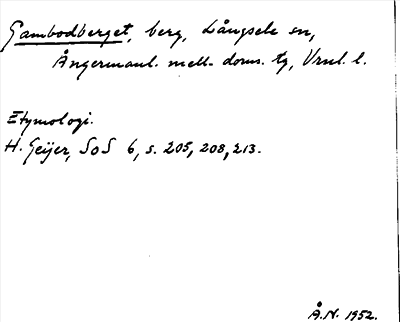 Gambodberget, berg, Långsele sn,
Ångermanl. mell. doms. tg, Vrnl. l.
Etymologi.
H. Geijer, SoS 6, s. 205, 208, 213.
Å.N. 1952.